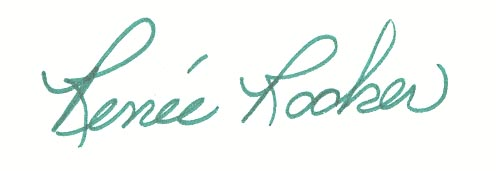 Renée Rooker